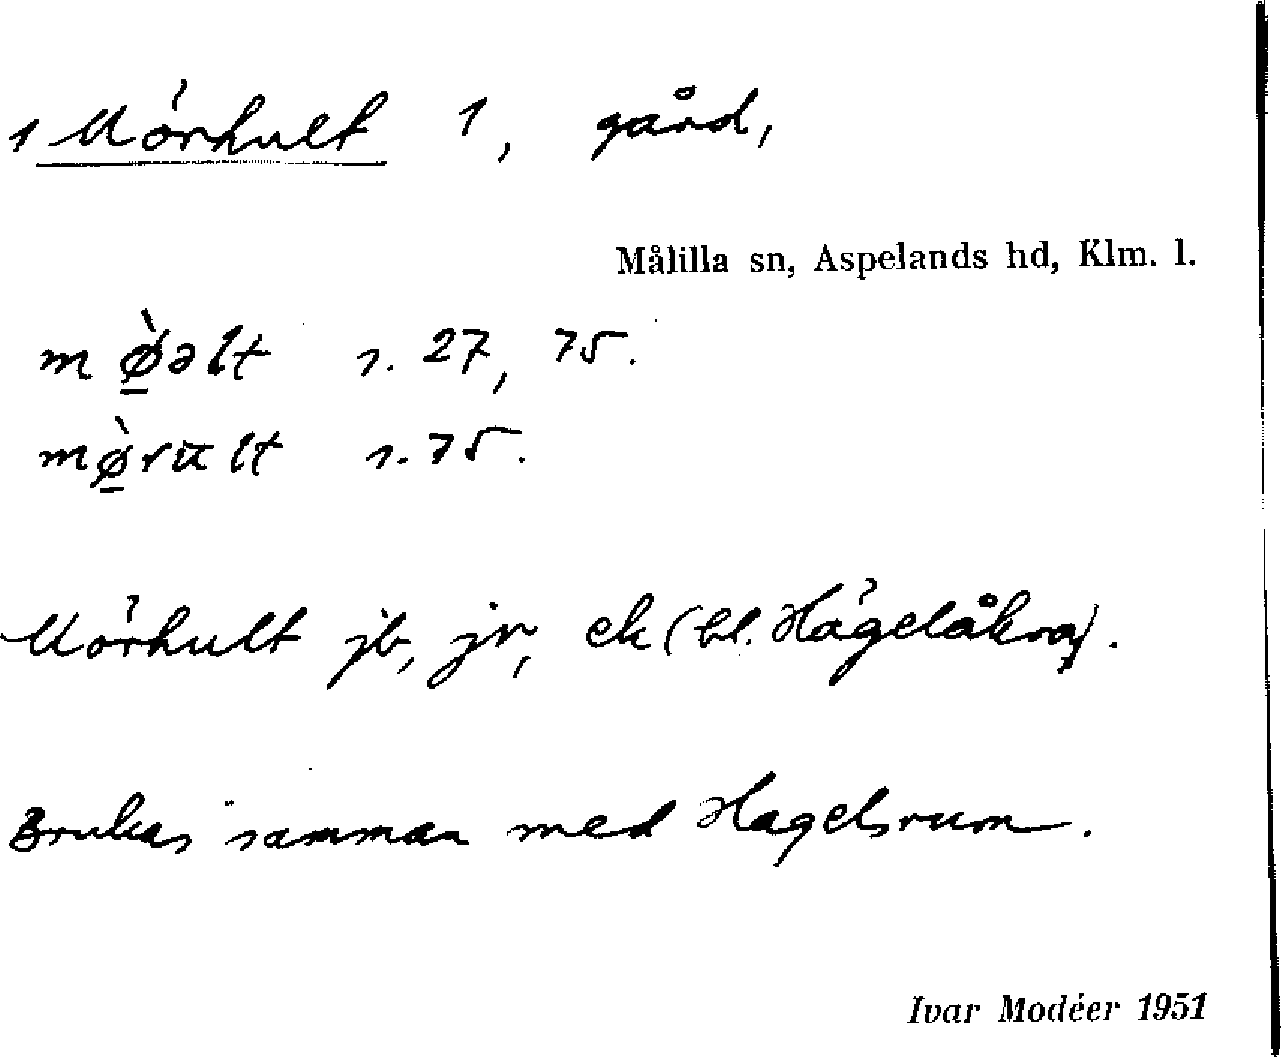 1 Mörhult 1, gård,
Målilla sn, Aspelands hd, Klm. l.
mø̱̀əlt s. 27, 75.
mø̱̀rult s. 75.
Mörhult jb, jr, ek (bl. Hägelåkra).
Brukas samman med Hagelsrum.
Ivar Modéer 1951